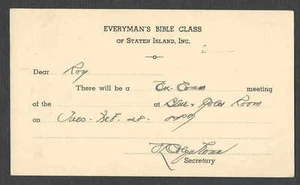 EVERYMAN'S BIBLE CLASS
OF STATEN ISLAND, INC.
Dear Roy
There will be a Ex-Comm meeting
of the at Blue Room
on Tues - Feb - 28
Secretary